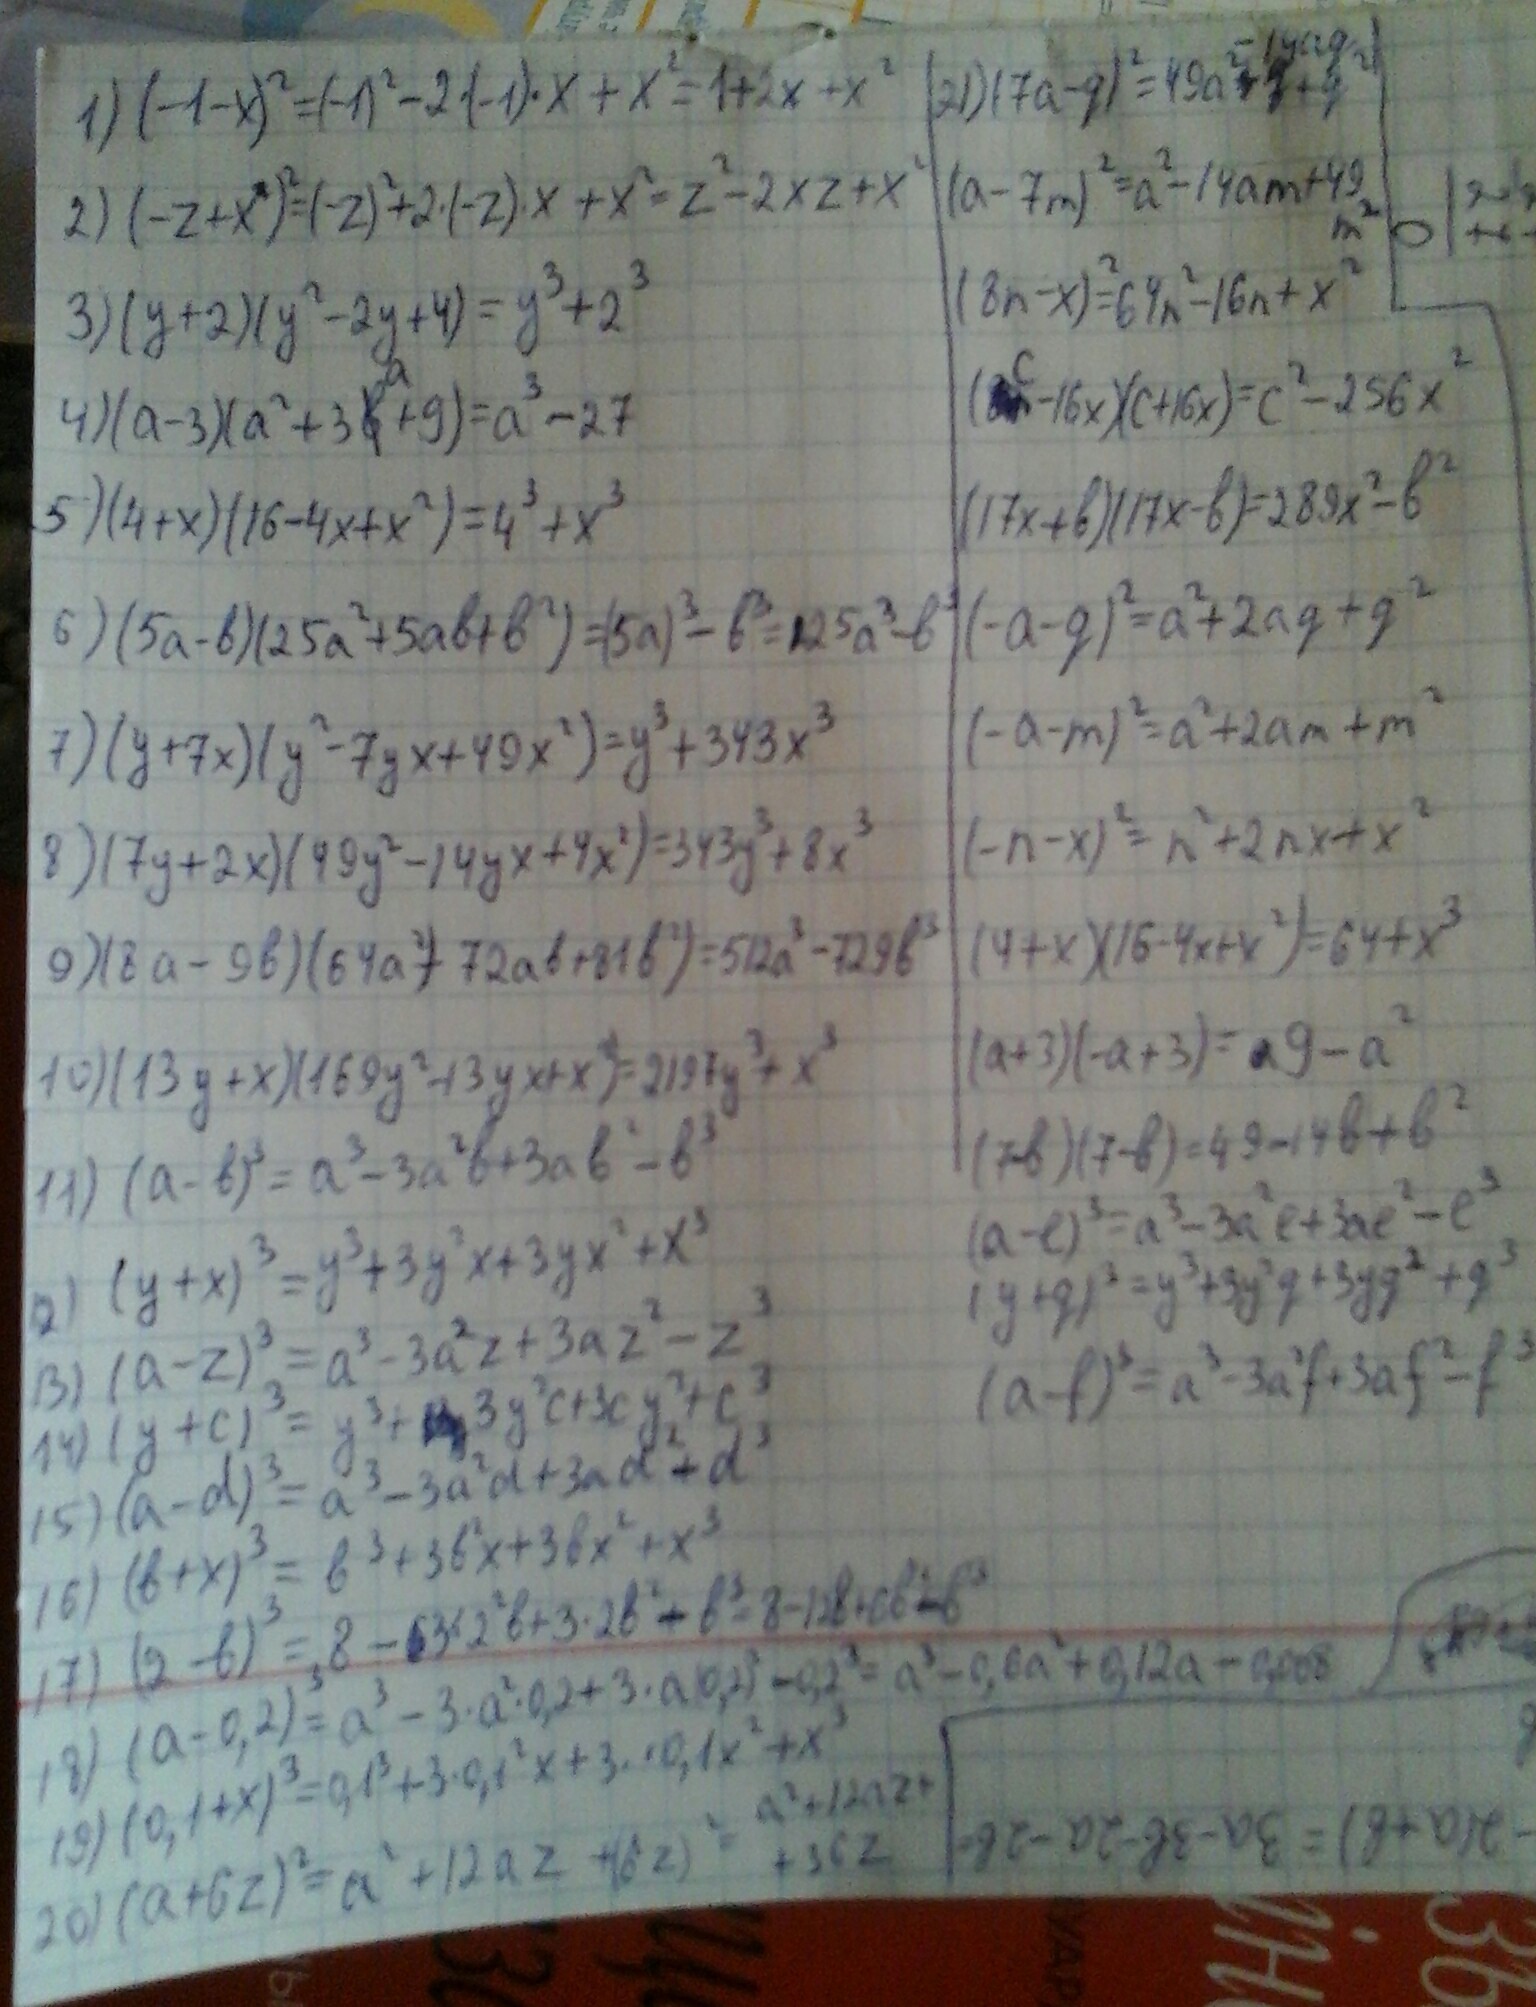 1) (-1-x)²=(-1)²-2·(-1)·x+x²=1+2x+x²
2) (-z+x)²=(-z)²+2·(-z)·x+x²=z²-2xz+x²
3) (y+2)(y²-2y+4)=y³+2³
4) (a-3)(a²+3a+9)=a³-27
5) (4+x)(16-4x+x²)=4³+x³
6) (5a-b)(25a²+5ab+b²)=(5a)³-b³=125a³-b³
7) (y+7x)(y²-7yx+49x²)=y³+343x³
8) (7y+2x)(49y²-14yx+4x²)=343y³+8x³
9) (8a-9b)(64a²+72ab+81b²)=512a³-729b³
10) (13y+x)(169y²-13yx+x²)=2197y³+x³
11) (a-b)³=a³-3a²b+3ab²-b³
12) (y+x)³=y³+3y²x+3yx²+x³
13) (a-z)³=a³-3a²z+3az²-z³
14) (y+c)³=y³+3y²c+3cy²+c³
15) (a-d)³=a³-3a²d+3ad²+d³
16) (b+x)³=b³+3b²x+3bx²+x³
17) (2-b)³=8-3·2²b+3·2b²-b³=8-12b+6b²-b³
18) (a-0,2)³=a³-3·a²·0,2+3·a(0,2)²-0,2³=a³-0,6a²+0,12a-0,008
19) (0,1+x)³=0,1³+3·0,1²x+3··0,1x²+x³
20) (a+6z)²=a²+12az+(6z)²=a²+12az+
+36z
21) (7a-q)²=49a²-14aq+q²
(a-7m)²=a²-14am+49
m²
(8n-x)²=64n²-16n+x²
(c-16x)(c+16x)=c²-256x²
(17x+b)(17x-b)=289x²-b²
(-a-q)²=a²+2aq+q²
(-a-m)²=a²+2am+m²
(-n-x)²=n²+2nx+x²
(4+x)(16-4x+x²)=64+x³
(a+3)(-a+3)=9-a²
(7-b)(7-b)=49-14b+b²
(a-e)³=a³-3a²e+3ae²-e³
(y+q)³=y³+3y²q+3yq²+q³
(a-f)³=a³-3a²f+3af²-f³
-2(a+b)=3a-3b-2a-2b=